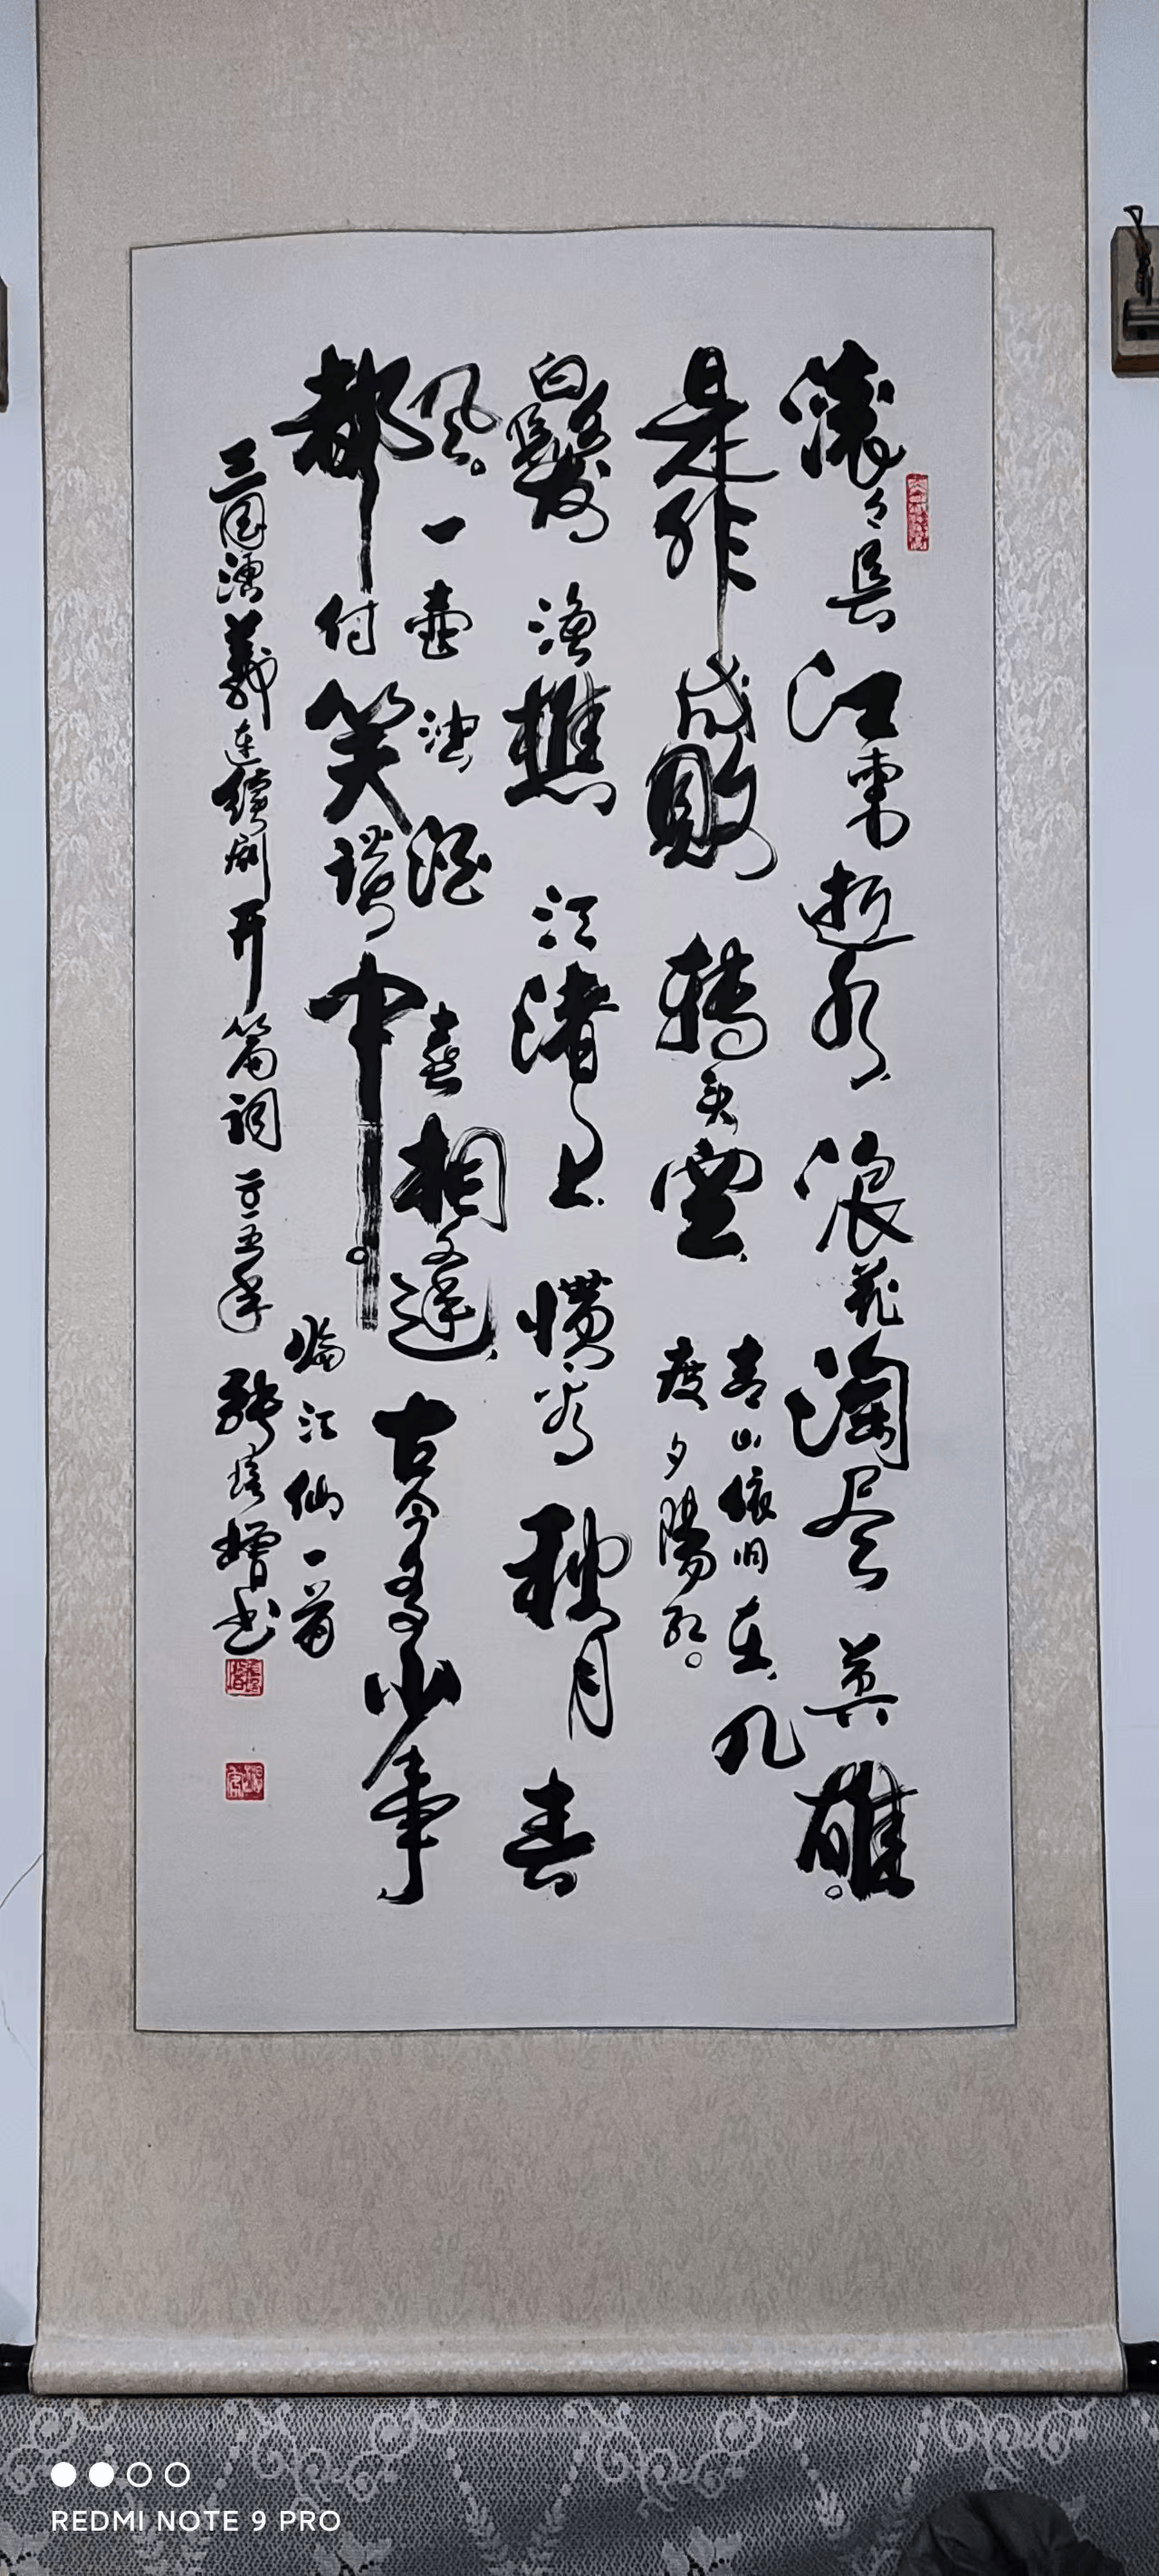 滚々長江東逝水浪花淘尽英雄。
是非成敗轉头空青山依旧在几
度夕陽红。
白髮渔樵江渚上惯看秋月春
风。一壶浊酒喜相逢古今多少事
都付笑談中。
临江仙一首
三国演義連續劇开篇词二〇一五年張培增书
REDMI NOTE 9 PRO